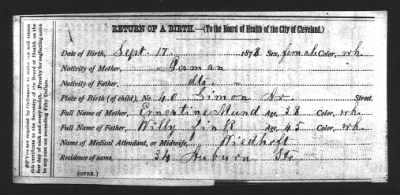 RETURN OF A BIRTH.—(To the Board of Health of the City of Cleveland.)
Date of Birth, Sept. 17 1878 Sex, female Color, wh.
Nativity of Mother, German
Nativity of Father, dto
Place of Birth (of child), No. 40 Simon Str. Street
Full Name of Mother, Ernestine Mund Age, 38 Color, wh.
Full Name of Father, Willy Fink Age, 43 Color, wh.
Name of Medical Attendant, or Midwife, Wiedhopf
Residence of same, 34 Auburn Str.
(OVER.)